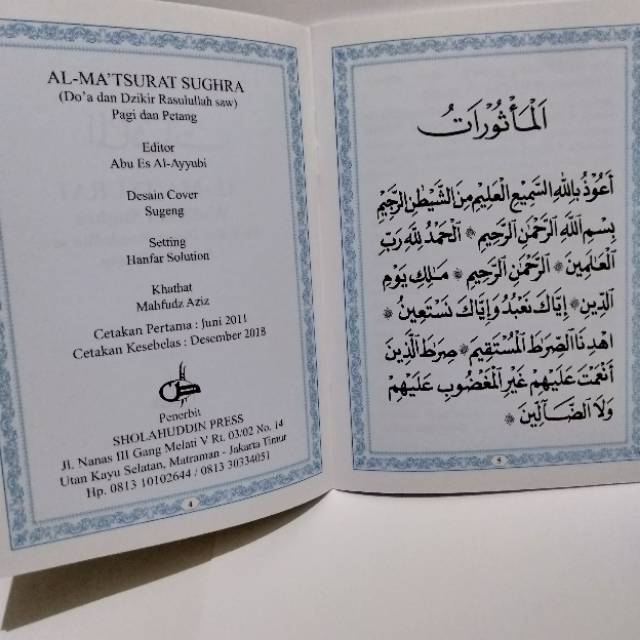 AL-MA'TSURAT SUGHRA
(Do'a dan Dzikir Rasulullah saw)
Pagi dan Petang
Editor
Abu Es Al-Ayyubi
Desain Cover
Sugeng
Setting
Hanfar Solution
Khathat
Mahfudz Aziz
Cetakan Pertama : Juni 2011
Cetakan Kesebelas : Desember 2018
Penerbit
SHOLAHUDDIN PRESS
Jl. Nanas III Gang Melati V Rt. 03/02 No. 14
Utan Kayu Selatan, Matraman - Jakarta Timur
Hp. 0813 10102644 / 0813 30334051
4
اَلْمَأْثُوْرَاتُ
اَعُوْذُ بِاللهِ السَّمِيْعِ الْعَلِيْمِ مِنَ الشَّيْطٰنِ الرَّجِيْمِ
بِسْمِ اللَّهِ الرَّحْمَٰنِ الرَّحِيْمِ ۞ اَلْحَمْدُ لِلَّهِ رَبِّ
الْعَالَمِيْنَ ۞ اَلرَّحْمَٰنِ الرَّحِيْمِ ۞ مَالِكِ يَوْمِ
الدِّيْنِ ۞ اِيَّاكَ نَعْبُدُ وَاِيَّاكَ نَسْتَعِيْنُ ۞
اهْدِنَا الصِّرَاطَ الْمُسْتَقِيْمَ ۞ صِرَاطَ الَّذِيْنَ
اَنْعَمْتَ عَلَيْهِمْ غَيْرِ الْمَغْضُوْبِ عَلَيْهِمْ
وَلَا الضَّالِّيْنَ ۞